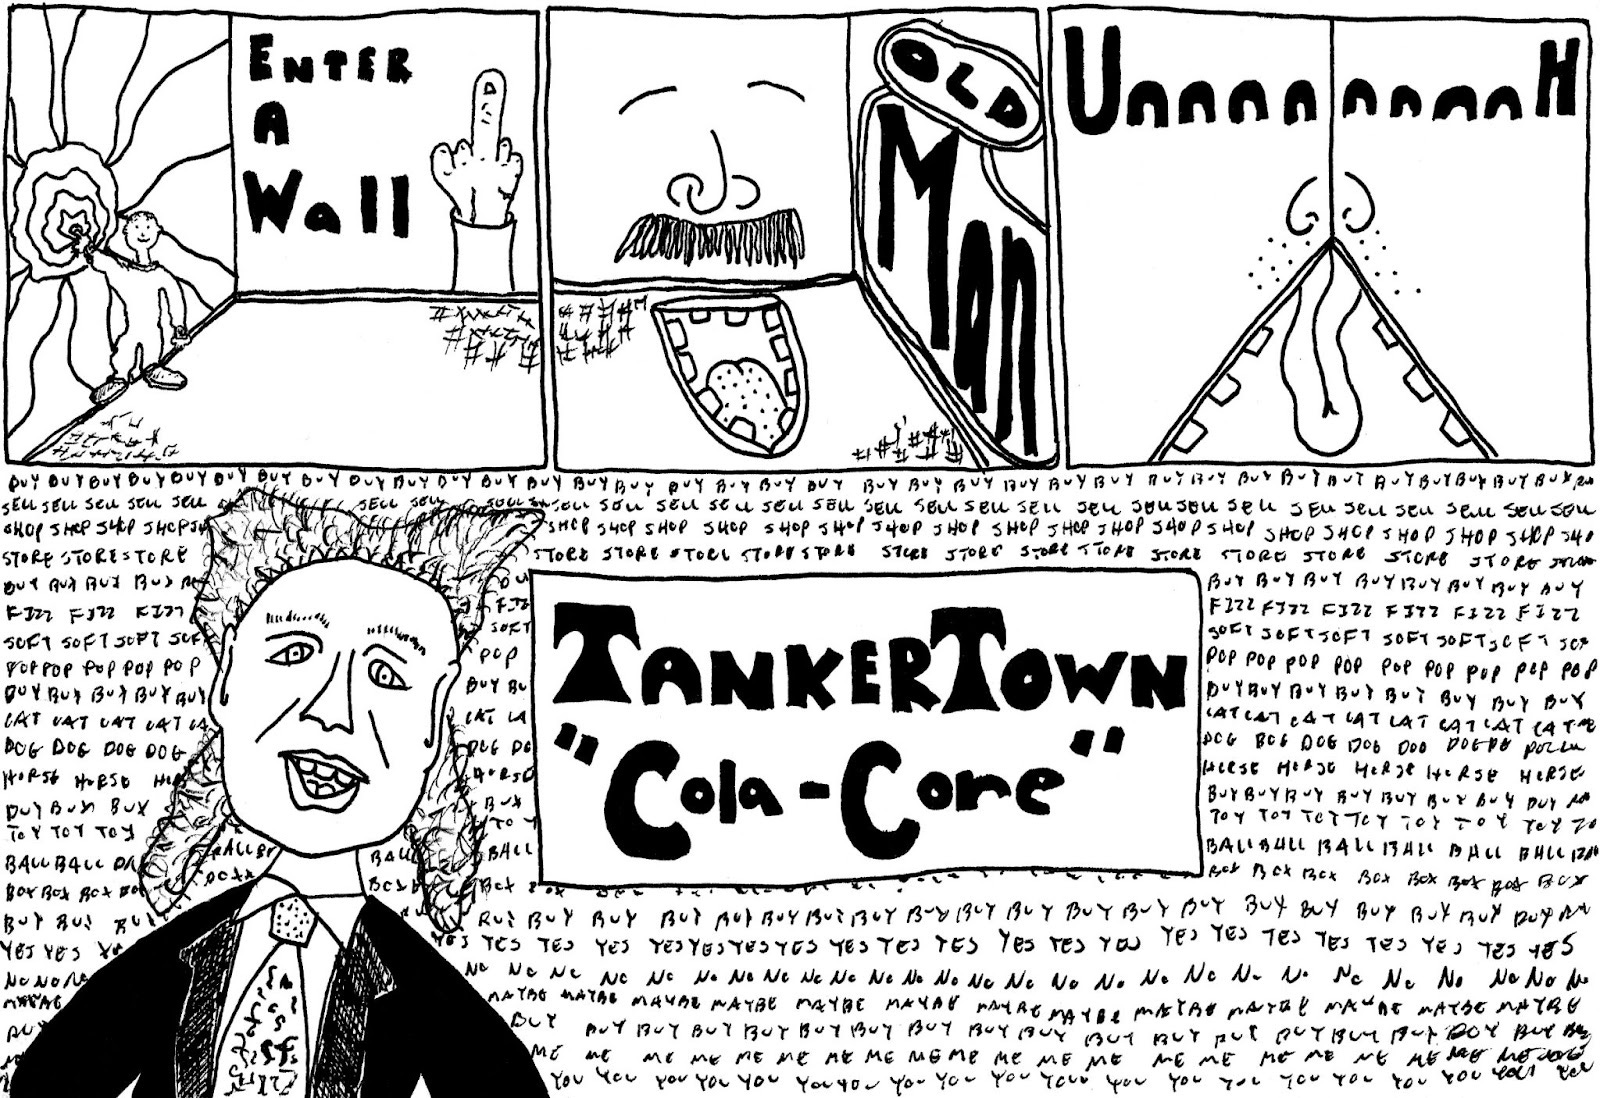 ENTER
A
Wall
OLD
Man
UnnnnnnnnnnH
BUY BUY BUY BUY BUY BUY BUY BUY BUY BUY BUY BUY BUY BUY BUY BUY BUY BUY BUY BUY BUY BUY BUY BUY BUY BUY BUY BUY BUY BUY BUY BUY BUY
SELL SELL SELL SELL SELL SELL SELL SELL SELL SELL SELL SELL SELL SELL SELL SELL SELL SELL SELL SELL SELL SELL SELL SELL SELL
SHOP SHOP SHOP SHOP SHOP SHOP SHOP SHOP SHOP SHOP SHOP SHOP SHOP SHOP SHOP SHOP SHOP SHOP SHOP SHOP SHOP SHOP
STORE STORE STORE STORE STORE STORE STORE STORE STORE STORE STORE STORE STORE STORE STORE STORE STORE
BUY BUY BUY BUY BUY BUY BUY BUY BUY BUY BUY BUY
FIZZ FIZZ FIZZ FIZZ FIZZ FIZZ FIZZ FIZZ FIZZ
SOFT SOFT SOFT SOFT SOFT SOFT SOFT SOFT SOFT SOFT
POP POP POP POP POP POP POP POP POP POP POP POP POP POP POP
BUY BUY BUY BUY BUY BUY BUY BUY BUY BUY BUY BUY BUY
CAT CAT CAT CAT CAT CAT CAT CAT CAT CAT CAT CAT
DOG DOG DOG DOG DOG DOG DOG DOG DOG DOG
HORSE HORSE HORSE HORSE HORSE HORSE HORSE HORSE
BUY BUY BUY BUY BUY BUY BUY BUY BUY BUY BUY BUY
TOY TOY TOY TOY TOY TOY TOY TOY TOY TOY
BALL BALL BALL BALL BALL BALL BALL BALL BALL BALL
BOX BOX BOX BOX BOX BOX BOX BOX BOX BOX BOX
TANKERTOWN
"Cola-Core"
BUY BUY BUY BUY BUY BUY BUY BUY BUY BUY BUY BUY BUY BUY BUY BUY BUY BUY BUY BUY BUY BUY
YES YES YES YES YES YES YES YES YES YES YES YES YES YES YES YES YES YES YES YES YES YES YES
NO NO NO NO NO NO NO NO NO NO NO NO NO NO NO NO NO NO NO NO NO NO NO NO NO
MAYBE MAYBE MAYBE MAYBE MAYBE MAYBE MAYBE MAYBE MAYBE MAYBE MAYBE MAYBE MAYBE MAYBE MAYBE
BUY BUY BUY BUY BUY BUY BUY BUY BUY BUY BUY BUY BUY BUY BUY BUY BUY BUY
ME ME ME ME ME ME ME ME ME ME ME ME ME ME ME ME ME ME ME ME
YOU YOU YOU YOU YOU YOU YOU YOU YOU YOU YOU YOU YOU YOU YOU YOU YOU YOU YOU YOU YOU YOU